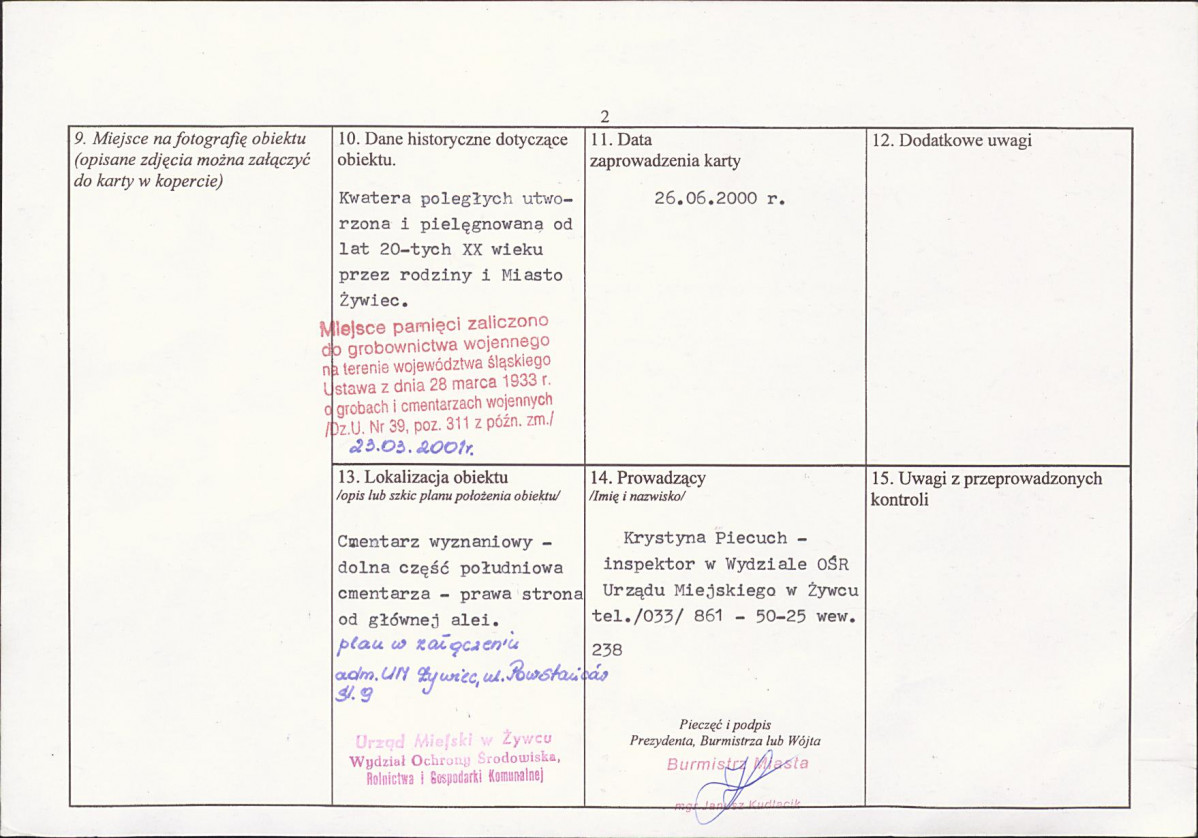 2
9. Miejsce na fotografię obiektu
(opisane zdjęcia można załączyć
do karty w kopercie)
10. Dane historyczne dotyczące
obiektu.
Kwatera poległych utwo-
rzona i pielęgnowana od
lat 20-tych XX wieku
przez rodziny i Miasto
Żywiec.
Miejsce pamięci zaliczono
do grobownictwa wojennego
na terenie województwa śląskiego
Ustawa z dnia 28 marca 1933 r.
o grobach i cmentarzach wojennych
/Dz.U. Nr 39, poz. 311 z późn. zm./
23.03.2001r.
11. Data
zaprowadzenia karty
26.06.2000 r.
12. Dodatkowe uwagi
13. Lokalizacja obiektu
/opis lub szkic planu położenia obiektu/
Cmentarz wyznaniowy -
dolna część południowa
cmentarza - prawa strona
od głównej alei.
plan w załączeniu
adm. UM Żywiec, ul. Powstańców
Śl. 9
Urząd Miejski w Żywcu
Wydział Ochrony Środowiska,
Rolnictwa i Gospodarki Komunalnej
14. Prowadzący
/Imię i nazwisko/
Krystyna Piecuch -
inspektor w Wydziale OŚR
Urzędu Miejskiego w Żywcu
tel./033/ 861 - 50-25 wew.
238
Pieczęć i podpis
Prezydenta, Burmistrza lub Wójta
Burmistrz Miasta
mgr Janusz
15. Uwagi z przeprowadzonych
kontroli